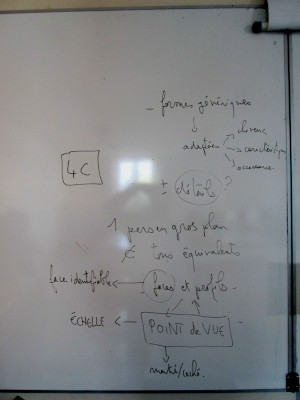 - formes génériques
adaptées
cheveux
caractéristiques
accessoires
4C
± détails ?
1 pers en gros plan
≠ tons équivalents
face identifiable
faces et profils -
ÉCHELLE
POINT de VUE
montré/caché.